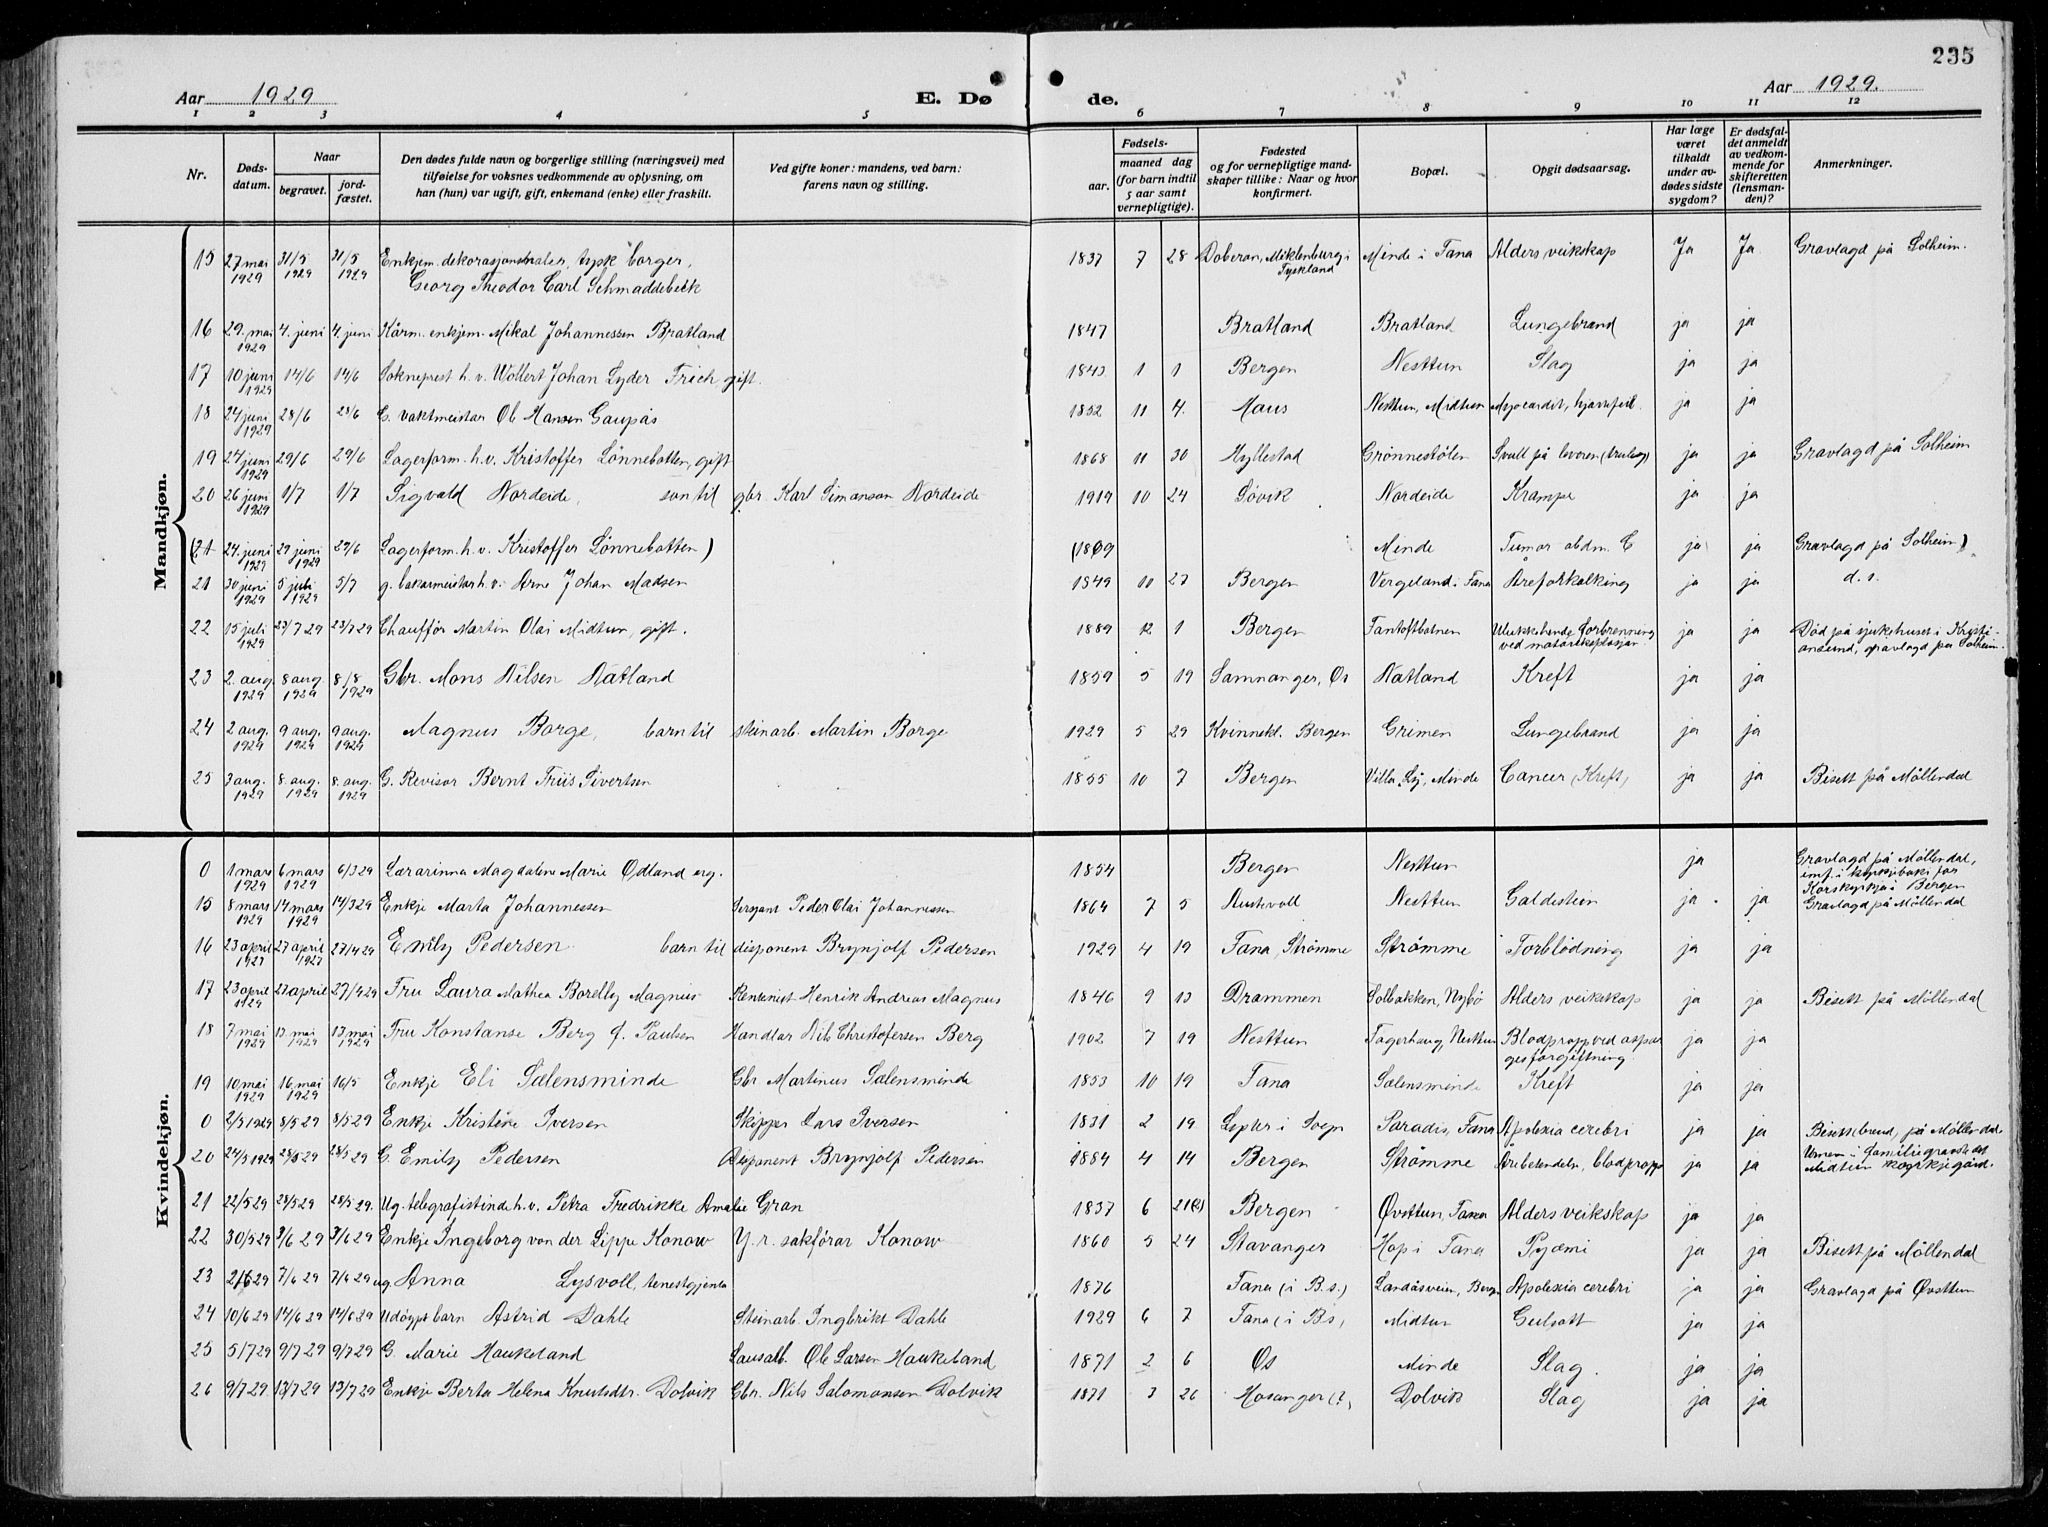 235
Aar 1929 E. Døde. Aar 1929.
1 2 3 4 5 6 7 8 9 10 11 12
Nr.
Dødsdatum.
Naar
begravet.
jordfæstet.
Den dødes fulde navn og borgerlige stilling (næringsvei) med
tilføielse for voksnes vedkommende av oplysning, om
han (hun) var ugift, gift, enkemand (enke) eller fraskilt.
Ved gifte koner: mandens, ved barn:
farens navn og stilling.
Fødsels-
aar.
maaned dag
(for barn indtil
5 aar samt
vernepligtige).
Fødested
og for vernepligtige mandskaper tillike: Naar og hvor
konfirmert.
Bopæl.
Opgit dødsaarsag.
Har læge
været
tilkaldt
under avdødes sidste
sygdom?
Er dødsfaldet anmeldt
av vedkommende for
skifteretten
(lensmanden)?
Anmerkninger.
Mandkjøn.
15 27 mai 1929 31/5 1929 31/5 1929 Enkjem. dekorasjonsmaler, tysk borger, Georg Theodor Carl Schmaddebeck 1837 7 28 Doberan, Miklenburg i Tyskland Minde i Fana Alders veikskap Ja Ja Gravlagd på Solheim.
16 29. mai 1929 4. juni 4. juni Kårm. enkjem. Mikal Johannessen Bratland 1847 Bratland Bratland Lungebrand ja ja
17 10 juni 1929 14/6 14/6 Sokneprest h.v. Wollert Johan Lyder Frich, gift. 1843 1 1 Bergen Nesttun Slag ja ja
18 24 juni 1929 28/6 28/6 G. vaktmeistar Ole Hansen Gaupås 1852 11 4. Haus Nesttun, Midtun Myocardit, hjartefeil. ja ja
19 24 juni 1929 29/6 29/6 Lagerform. h.v. Kristoffer Lønnebotten, gift 1868 11 30 Hyllestad Grønnestølen Svull på leveren ja ja Gravlagd på Solheim
20 26 juni 1929 1/7 1/7 Sigvald Nordeide, son til gbr. Karl Simonson Nordeide 1919 10 24 Søvik Nordeide Krampe ja ja
(21 24. juni 1929 29 juni 1929 29/6 Lagerform. h.v. Kristoffer Lønnebotten) (1869 Minde Tumor abdm. C ja ja Gravlagd på Solheim)
21 30 juni 1929 5 juli 1929 5/7 g. bakarmeistar h.v. Arne Johan Madsen 1849 10 27 Bergen Vergeland i Fana Åreforkalking ja ja d. s.
22 15 juli 1929 23/7 29 23/7 29 Chauffør Martin Olai Midtun, gift. 1889 12 1 Bergen Fantoftbotnen Ulukkehende forbrenning ved motoreksplosjon ja ja Død på sjukehuset i Kristiansund, gravlagd på Solheim.
23 2. aug. 1929 8 aug. 1929 8/8 1929 Gbr. Mons Nilsen Natland 1859 5 19 Samnanger, Os Natland Kreft ja ja
24 2 aug. 1929 9 aug. 1929 9 aug. 1929 Magnus Borge, barn til steinarb. Martin Borge 1929 5 29 Kvinnekl. Bergen Grimen Lungebrand ja ja
25 3 aug. 1929 8. aug. 1929 8. aug. 1929 G. Revisor Bernt Friis Sivertsen 1855 10 7 Bergen Villa Ly, Minde Cancer (Kreft) ja ja Bisett på Møllendal
Kvindekjøn.
0 1 mars 1929 6 mars 1929 6/3 29 Lærarinna Magdalene Marie Ødland ug. 1854 Bergen Nesttun ja Gravlagd på Møllendal, imf. i kyrkjeboki for Korskyrkja i Bergen
15 8 mars 1929 14 mars 1929 14/3 29 Enkje Marta Johannessen Sersjant Peder Olai Johannessen 1864 7 5 Austevoll Nesttun Galdestein ja ja Gravlagd på Møllendal
16 23 april 1929 27 april 1929 27/4 29 Emily Pedersen barn til disponent Brynjolf Pedersen 1929 4 19 Fana, Strømme Strømme Forblødning ja ja
17 23 april 1929 27 april 27/4 29 Fru Laura Mathea Borelly Magnus Rentenist Henrik Andreas Magnus 1846 9 13 Drammen Solbakken, Nybø Alders veikskap ja ja Bisett på Møllendal
18 7 mai 1929 13 mai 1929 13 mai 1929 Fru Konstanse Berg f. Paulsen Handlar Nils Christofersen Berg 1902 7 19 Nesttun Fagerhaug, Nesttun Blodpropp ved gesforgiftning ja ja
19 10 mai 1929 16 mai 1929 16/5 Enkje Eli Sælensminde Gbr Martinus Sælensminde 1853 10 19 Fana Sælensminde Kreft ja ja
0 2/5 1929 8/5 29 8/5 29 Enkje Kristine Iversen Skipper Lars Iversen 1831 2 19 i Sogn Paradis, Fana Apolexia cerebri ja ja Bisett, på Møllendal. Urnen i familiegravstedet Midtun kyrkjegård.
20 24/5 1929 28/5 29 28/5 29 G. Emily Pedersen Disponent Brynjolf Pedersen 1884 4 14 Bergen Strømme Årebetendelse, blodpropp ja ja
21 22/5 29 28/5 29 28/5 29. Ug. telegrafistinde h.v. Petra Fredrikke Amalie Gran 1837 6 21(?) Bergen Øvsttun, Fana Alders veikskap ja ja
22 30/5 29 3/6 29 3/6 29 Enkje Ingeborg von der Lippe Konow Y. r. sakførar Konow 1860 5 24 Stavanger Hop i Fana Pyæmi ja ja Bisett på Møllendal
23 2/6 29 7/6 29 7/6 29 ug Anna Lysvoll, tenestgjenta 1876 Fana (i B.s.) Landåsveien, Bergen Apolexia cerebri ja ja Gravlagd på Øvsttun
24 10/6 29 14/6 29 14/6 29 Udøypt barn Astrid Dahle Steinarb. Ingbrikt Dahle 1929 6 7 Fana (i B.s) Midtun Gulsott ja ja
25 5/7 29 9/7 29 9/7 29 G. Marie Haukeland Lausarb. Ole Larsen Haukeland 1871 2 6 Os Minde Slag. ja ja
26 9/7 29. 13/7 29 13/7 29 Enkje Berta Helena Knutsdtr. Dolvik Gbr. Nils Salomonsen Dolvik 1871 3 26 Hosanger (?) Dolvik Slag ja ja